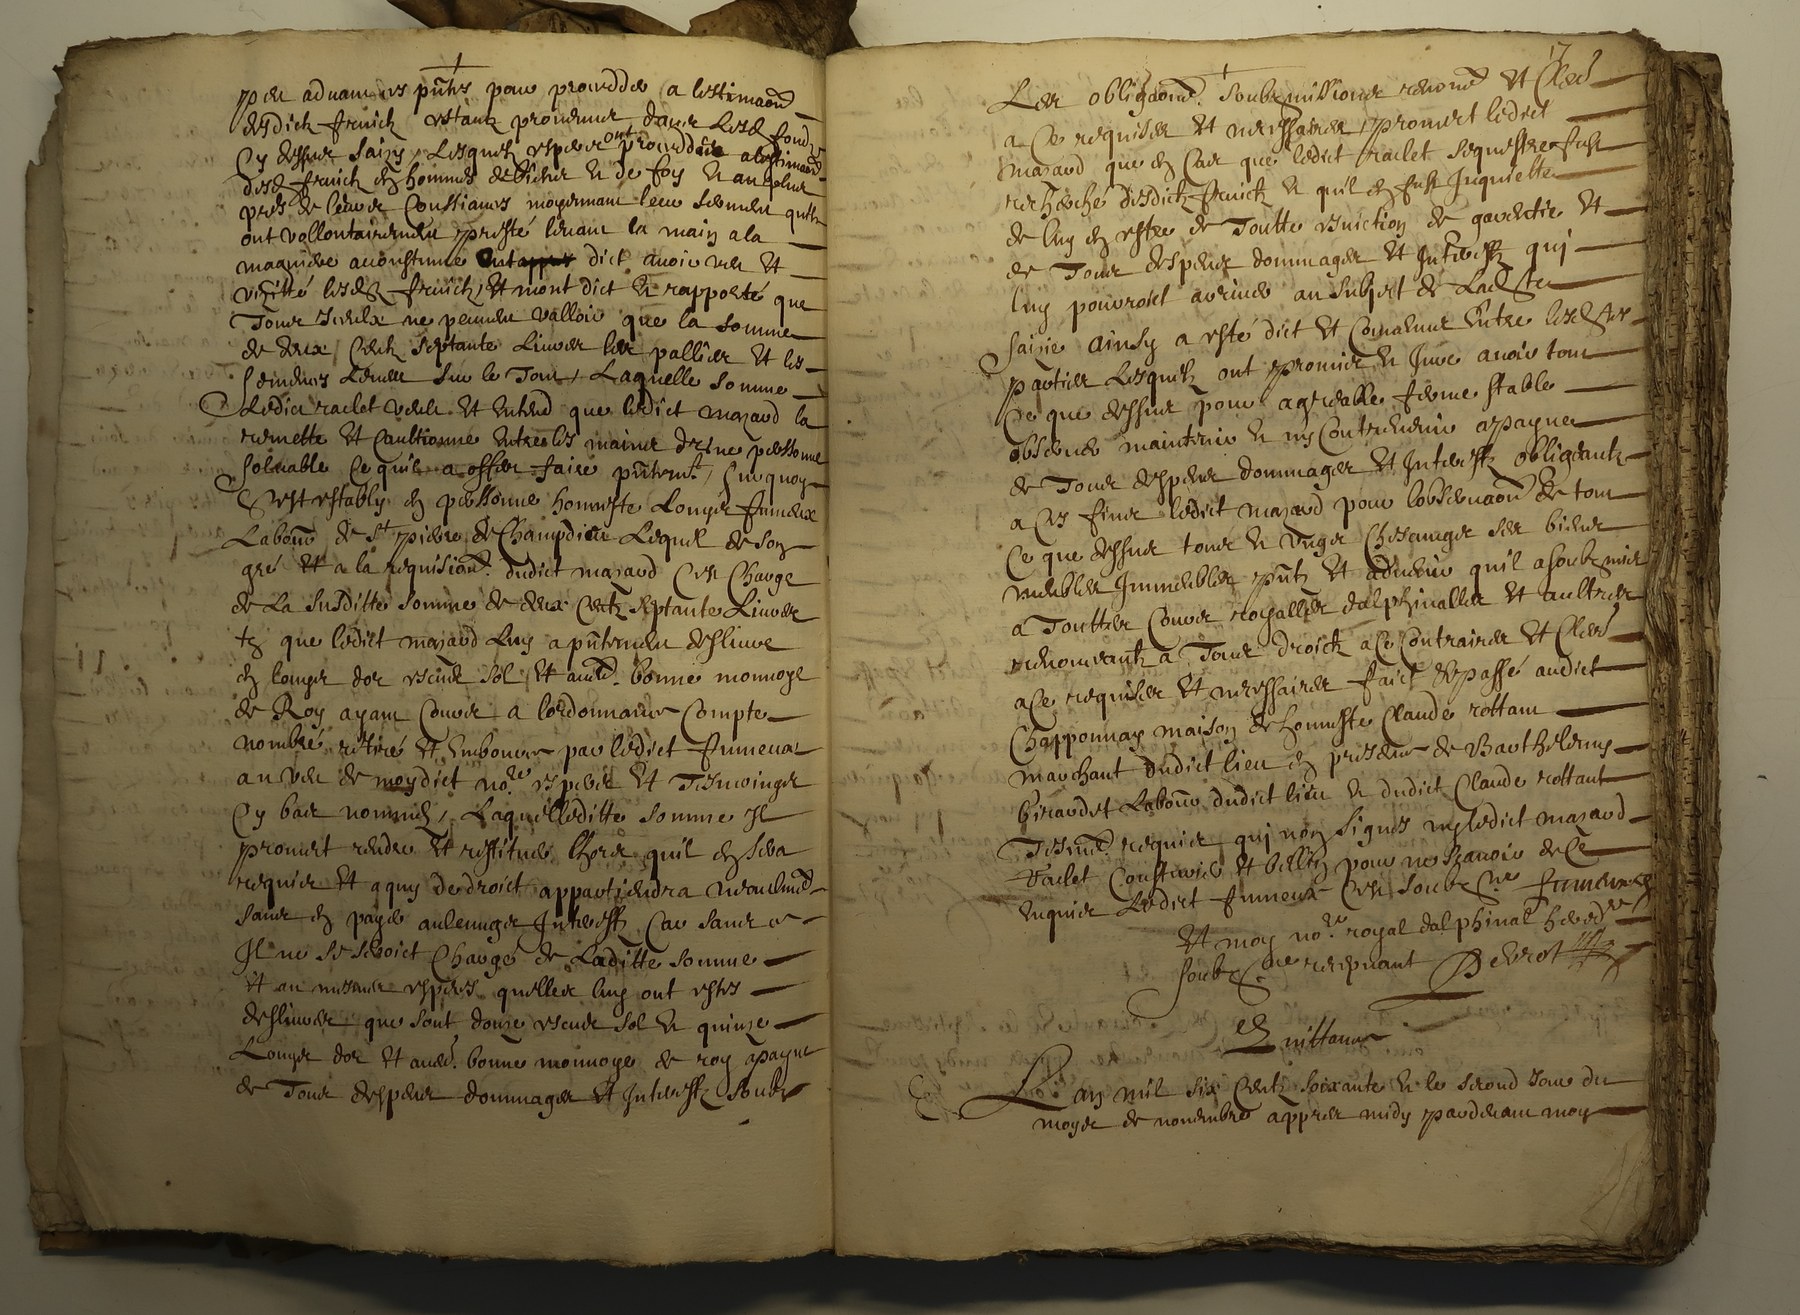 per advant les pñtes pour procedder a lestimaõn
desdictz fruictz estantz provenus dans lesd fondz
Cy dessus saizy, Lesquelz experts ont procedde a lestimaõn
desd fruictz en hommes de bien et de foy et au plus
pres de leurs Consciances moyennant leur serment quilz
ont vollontairement presté levant la main a la
maniere acoustumee dict avoir veu et
vizitté lesdz fruictz, et mont dict et rapporté que
Tous Iceulx ne peuvent valloir que la somme
de deux Centz septante Livres les pallies et les
semences levees sur le Tout, Laquelle somme
Ledict raclet veult et entend que ledict mazard la
remette et Caultionne entre les mains dune personne
solvable Ce quil a offert faire pñtemt, Surquoy
sest estably en personne honneste Longis Jumeux
Labour de St pierre de Champdieu Lequel de son
gré et a la requisiõn dudict mazard sest Charge
de La susditte somme de deux Centz septante Livres
tz que ledict mazard Luy a pñtement deslivre
en Louys dor escus sol et autre bonne monnoye
de Roy ayant Cours a lordonnance Compte
nombré retiré et Embourse par ledict Jumeux
au veu de moydict nore experts et Tesmoings
Cy bas nommes, Laquelleditte somme Il
promet rendre et restituer lhors quil en sera
requis et a quy de droict appartiendra neantmt
sans en payer aulcungs Interestz Car sans ce
Il ne se seroict Chargé de Laditte somme
et au mesmes especes quelles luy ont estes
deslivres que sont douze escus sol et quinze
Louys dor et autre bonne monnoye de roy a payne
de Tous despens dommages et Interestz soubz
17
Les obligaõns soubzmissions renonc et Cles
a Ce requises et necessaires, promet ledict
mazard que en Cas que ledict raclet sequestre fust
recherché desdictz fruictz et quil en fust Inquiette
de luy en estre de Toutte eviction de garentie et
de Tous despens dommages et Interestz qui
luy pourroict arriver au subject de Lad
saizie ainsy a esté dict et Convenu Entre lesd
parties Lesquelz ont promis et Jure avoir tout
Ce que dessus pour agreable ferme stable
observer maintenir et ny Contrevenir a payne
de Tous despens dommages et Interestz obligeantz
a Ces fins ledict mazard pour lobservaõn de tout
Ce que dessus tous et ungs Chescungs ses biens
meubles Immeubles pñtz et advenir quil a soubzmis
a Touttes Cours royalles dalphinalles et aultres
renonceantz a Tous droictz a Ce Contraires et Cles
a Ce requises et necessaires faict et passé audict
Chapponnay maison de honneste Claude rottant
marchant dudict lieu en presence de Barthelemy
Girardet Labour dudict lieu et dudict Claude rottant
Tesmt requis qui non signes ny ledict mazard
raclet pour ne scavoir de Ce
enquis Ledict Jumeux sest soubz ne Jumeux
et moy nore royal dalphinal heredre
soubz ne recepvant Debrot
Quittance
Lan mil six Centz soixante et le second Jour du
moys de novembre appres midy pardevant moy